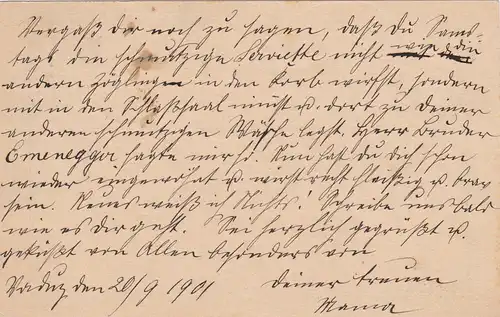 Vergaß dir noch zu sagen, daß Du Sams-
tags die schmutzige Serviette nicht wie die
andern Zöglinge in den Korb wirfst, sondern
mit in den Schlafsaal nimst u. dort zu deiner
anderen schmutzigen Wäsche legst. Herr Bruder
Emenegger sagte mirs. Nun hast du dich schon
wieder eingewöhnt u. wirst recht fleißig u. brav
sein. Neues weiß ich Nichts. Schreibe uns bald
wie es dir geht. Sei herzlich gegrüßt u.
geküßt von Allen besonders von
Vaduz, den 20/9 1901 deiner treuen
Mama